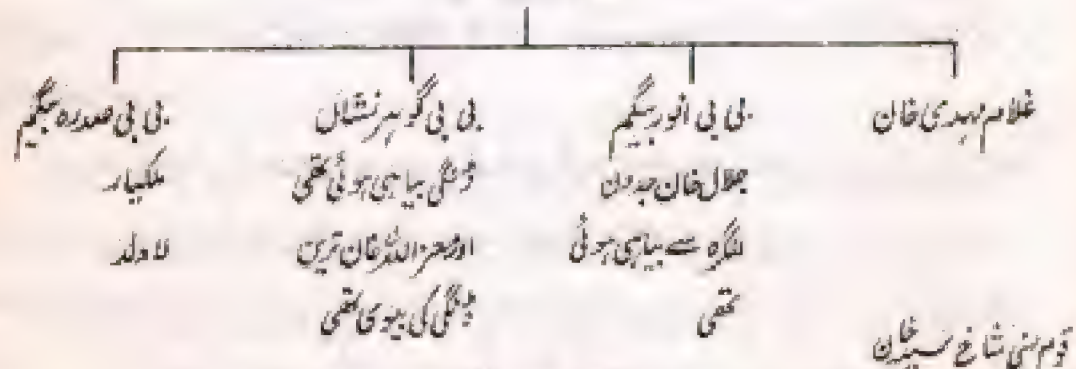 غلام مہدی خان
بی بی انور بیگم
جلال خان جدون
لنگرہ سے بیاہی ہوئی
تھی
بی بی گوہر نشال
ڈھنگی بیاہی ہوئی تھی
اور معز اللہ خان ترین
ڈھنگی کی بیوی تھی
بی بی صدرہ بیگم
ملکیار
لا ولد
قوم سنی شاخ سید خان